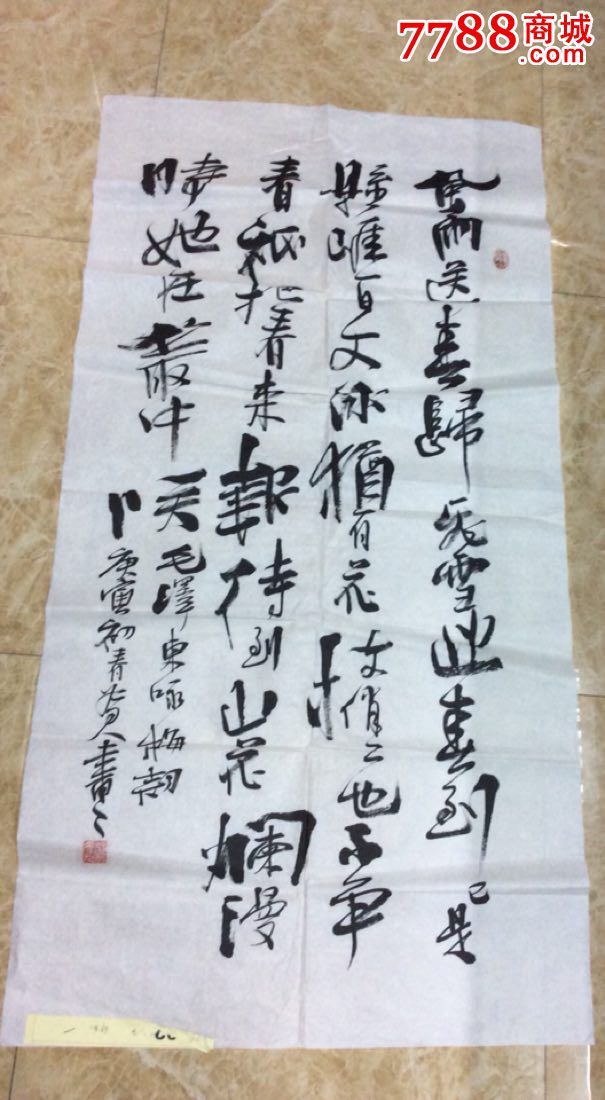 7788商城
.com
風雨送春歸飛雪迎春到已是
縣崖百丈冰猶有花枝俏々也不争
春祇把春来報待到山花爛漫
時她在叢中笑毛澤東咏梅詞
庚寅初